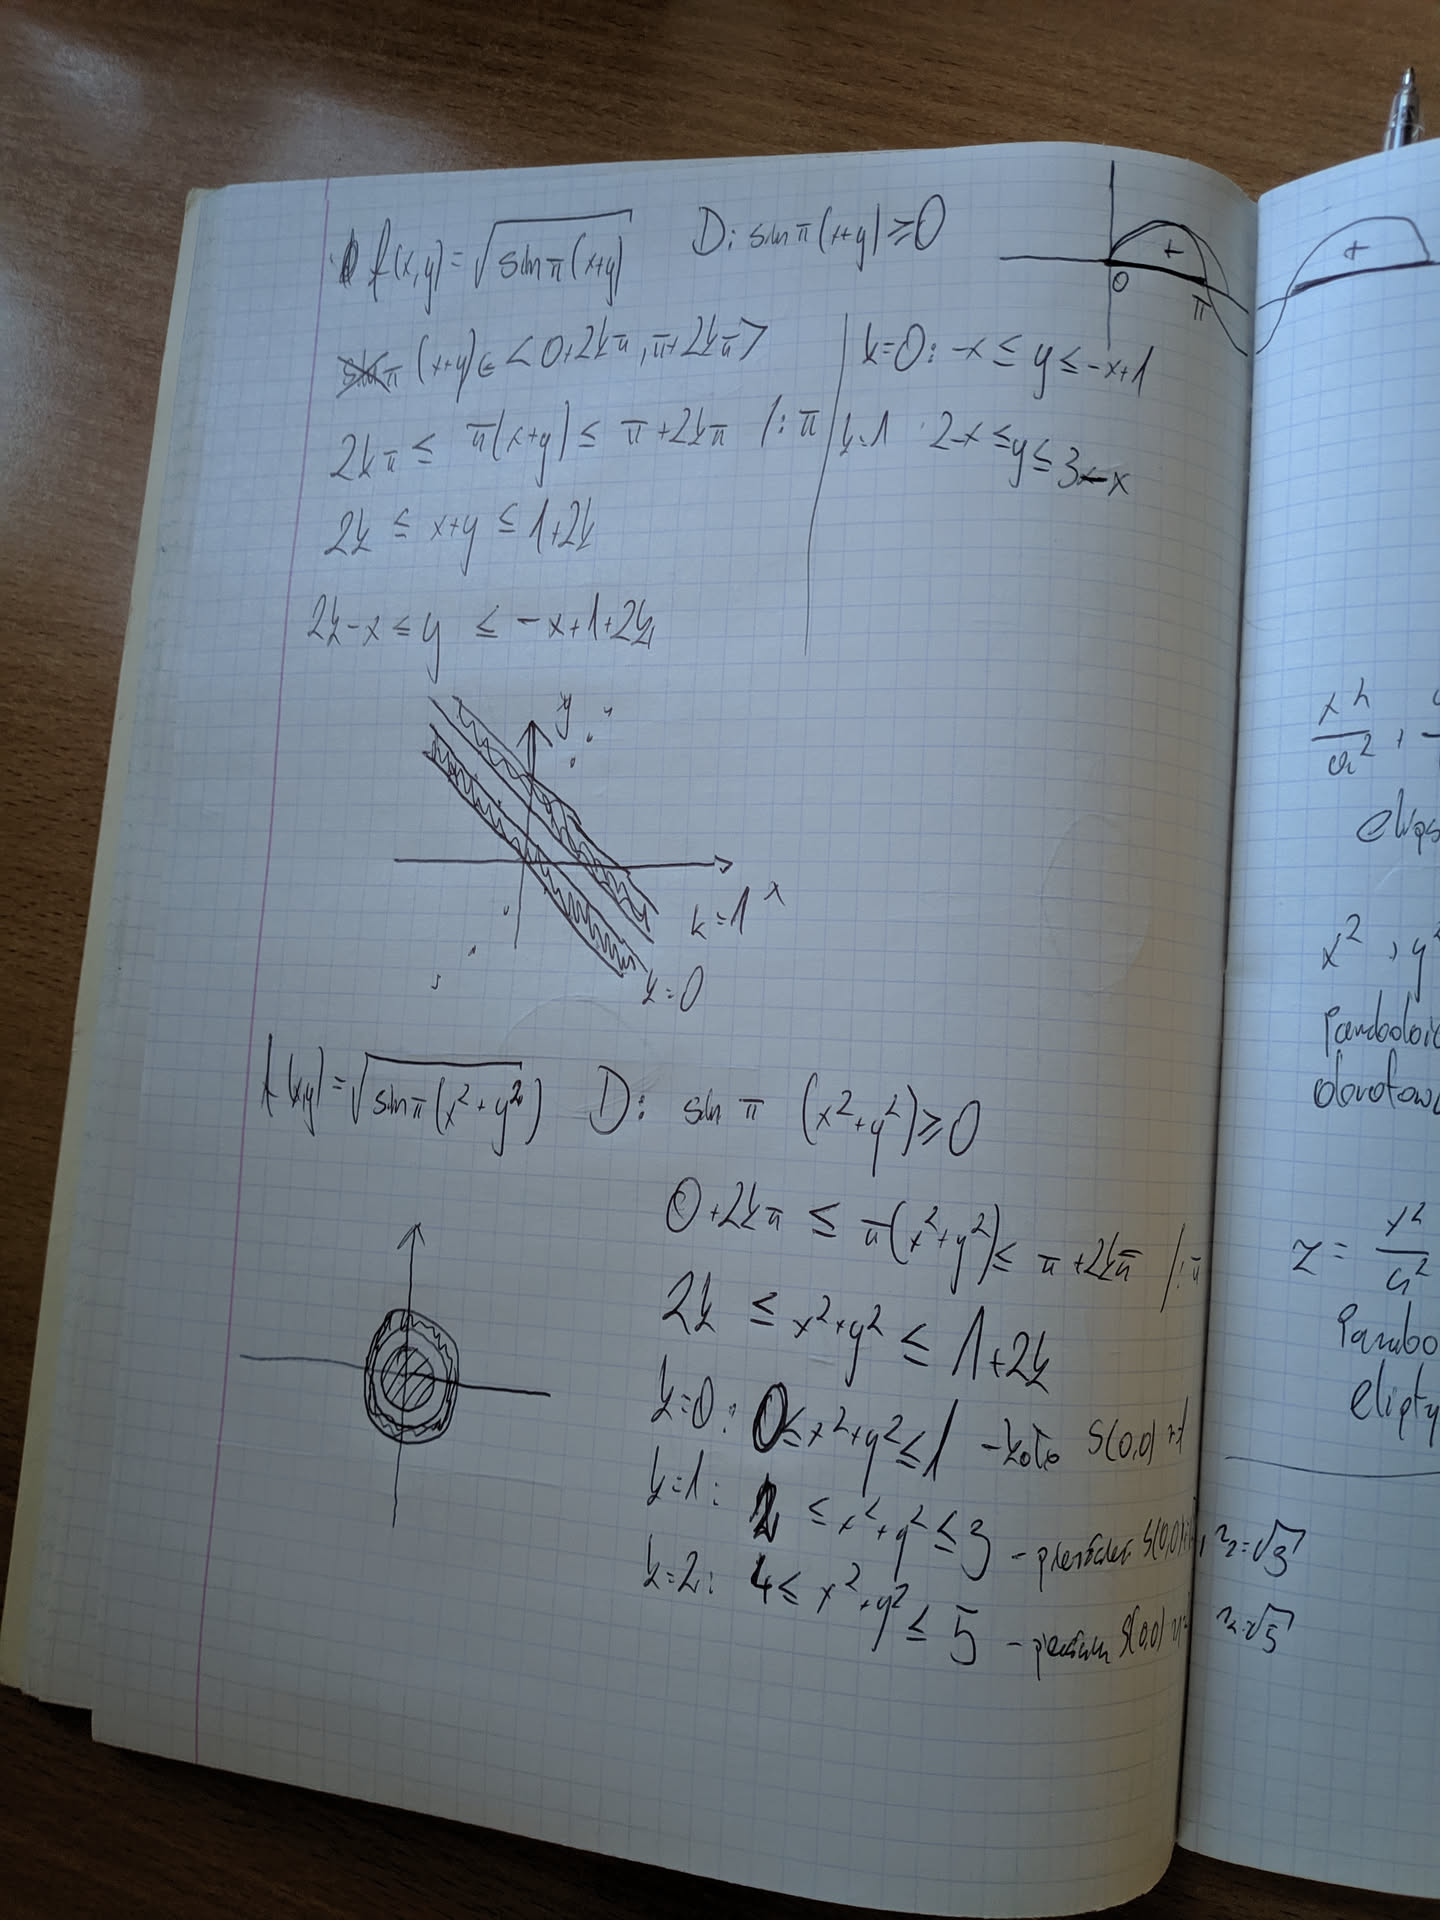 f(x,y) = √sin π(x+y)   D: sin π(x+y) ≥ 0
+
0
π
+
π(x+y) ∈ <0+2kπ, π+2kπ>
k=0: -x ≤ y ≤ -x+1
2kπ ≤ π(x+y) ≤ π+2kπ /:π
k=1 2-x ≤ y ≤ 3-x
2k ≤ x+y ≤ 1+2k
2k-x ≤ y ≤ -x+1+2k
y
x
k=1
k=0
f(x,y) = √sin π(x²+y²)   D: sin π (x²+y²) ≥ 0
0+2kπ ≤ π(x²+y²) ≤ π+2kπ /:π
2k ≤ x²+y² ≤ 1+2k
k=0: 0 ≤ x²+y² ≤ 1 - koło S(0,0) r=1
k=1: 2 ≤ x²+y² ≤ 3 - pierścień S(0,0) r₂=√3
k=2: 4 ≤ x²+y² ≤ 5 - pierścień S(0,0) r₂=√5
x²
a²
elips
x² , y²
Paraboloi
obrotow
z = x²
a²
Parabo
elipty